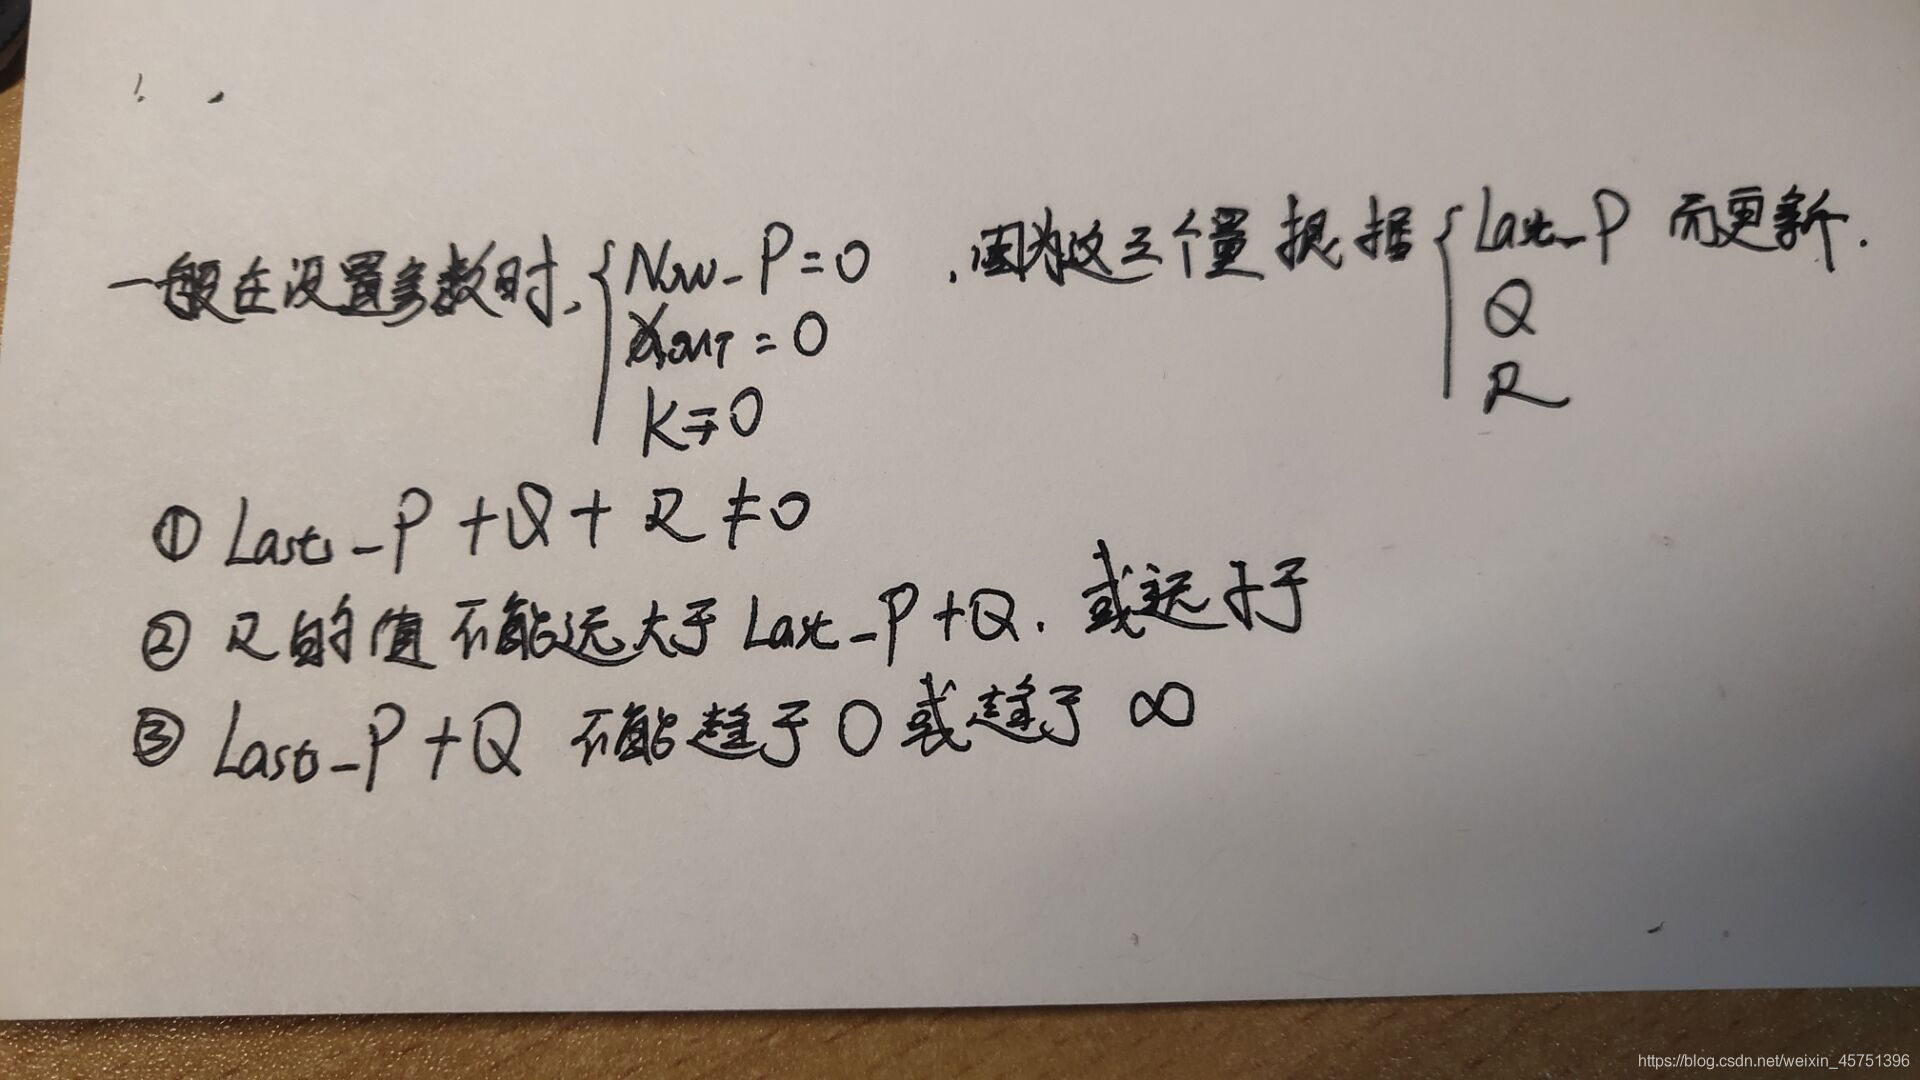 一般在设置参数时, { Now_P=0 , 因为这三个量 根据 { Last_P 而更新.
out = 0 Q
K=0 R
① Last_P + Q + R ≠0
② R的值不能远大于 Last_P+Q. 或远小于
③ Last_P+Q 不能趋于 0 或趋于 ∞
https://blog.csdn.net/weixin_45751396